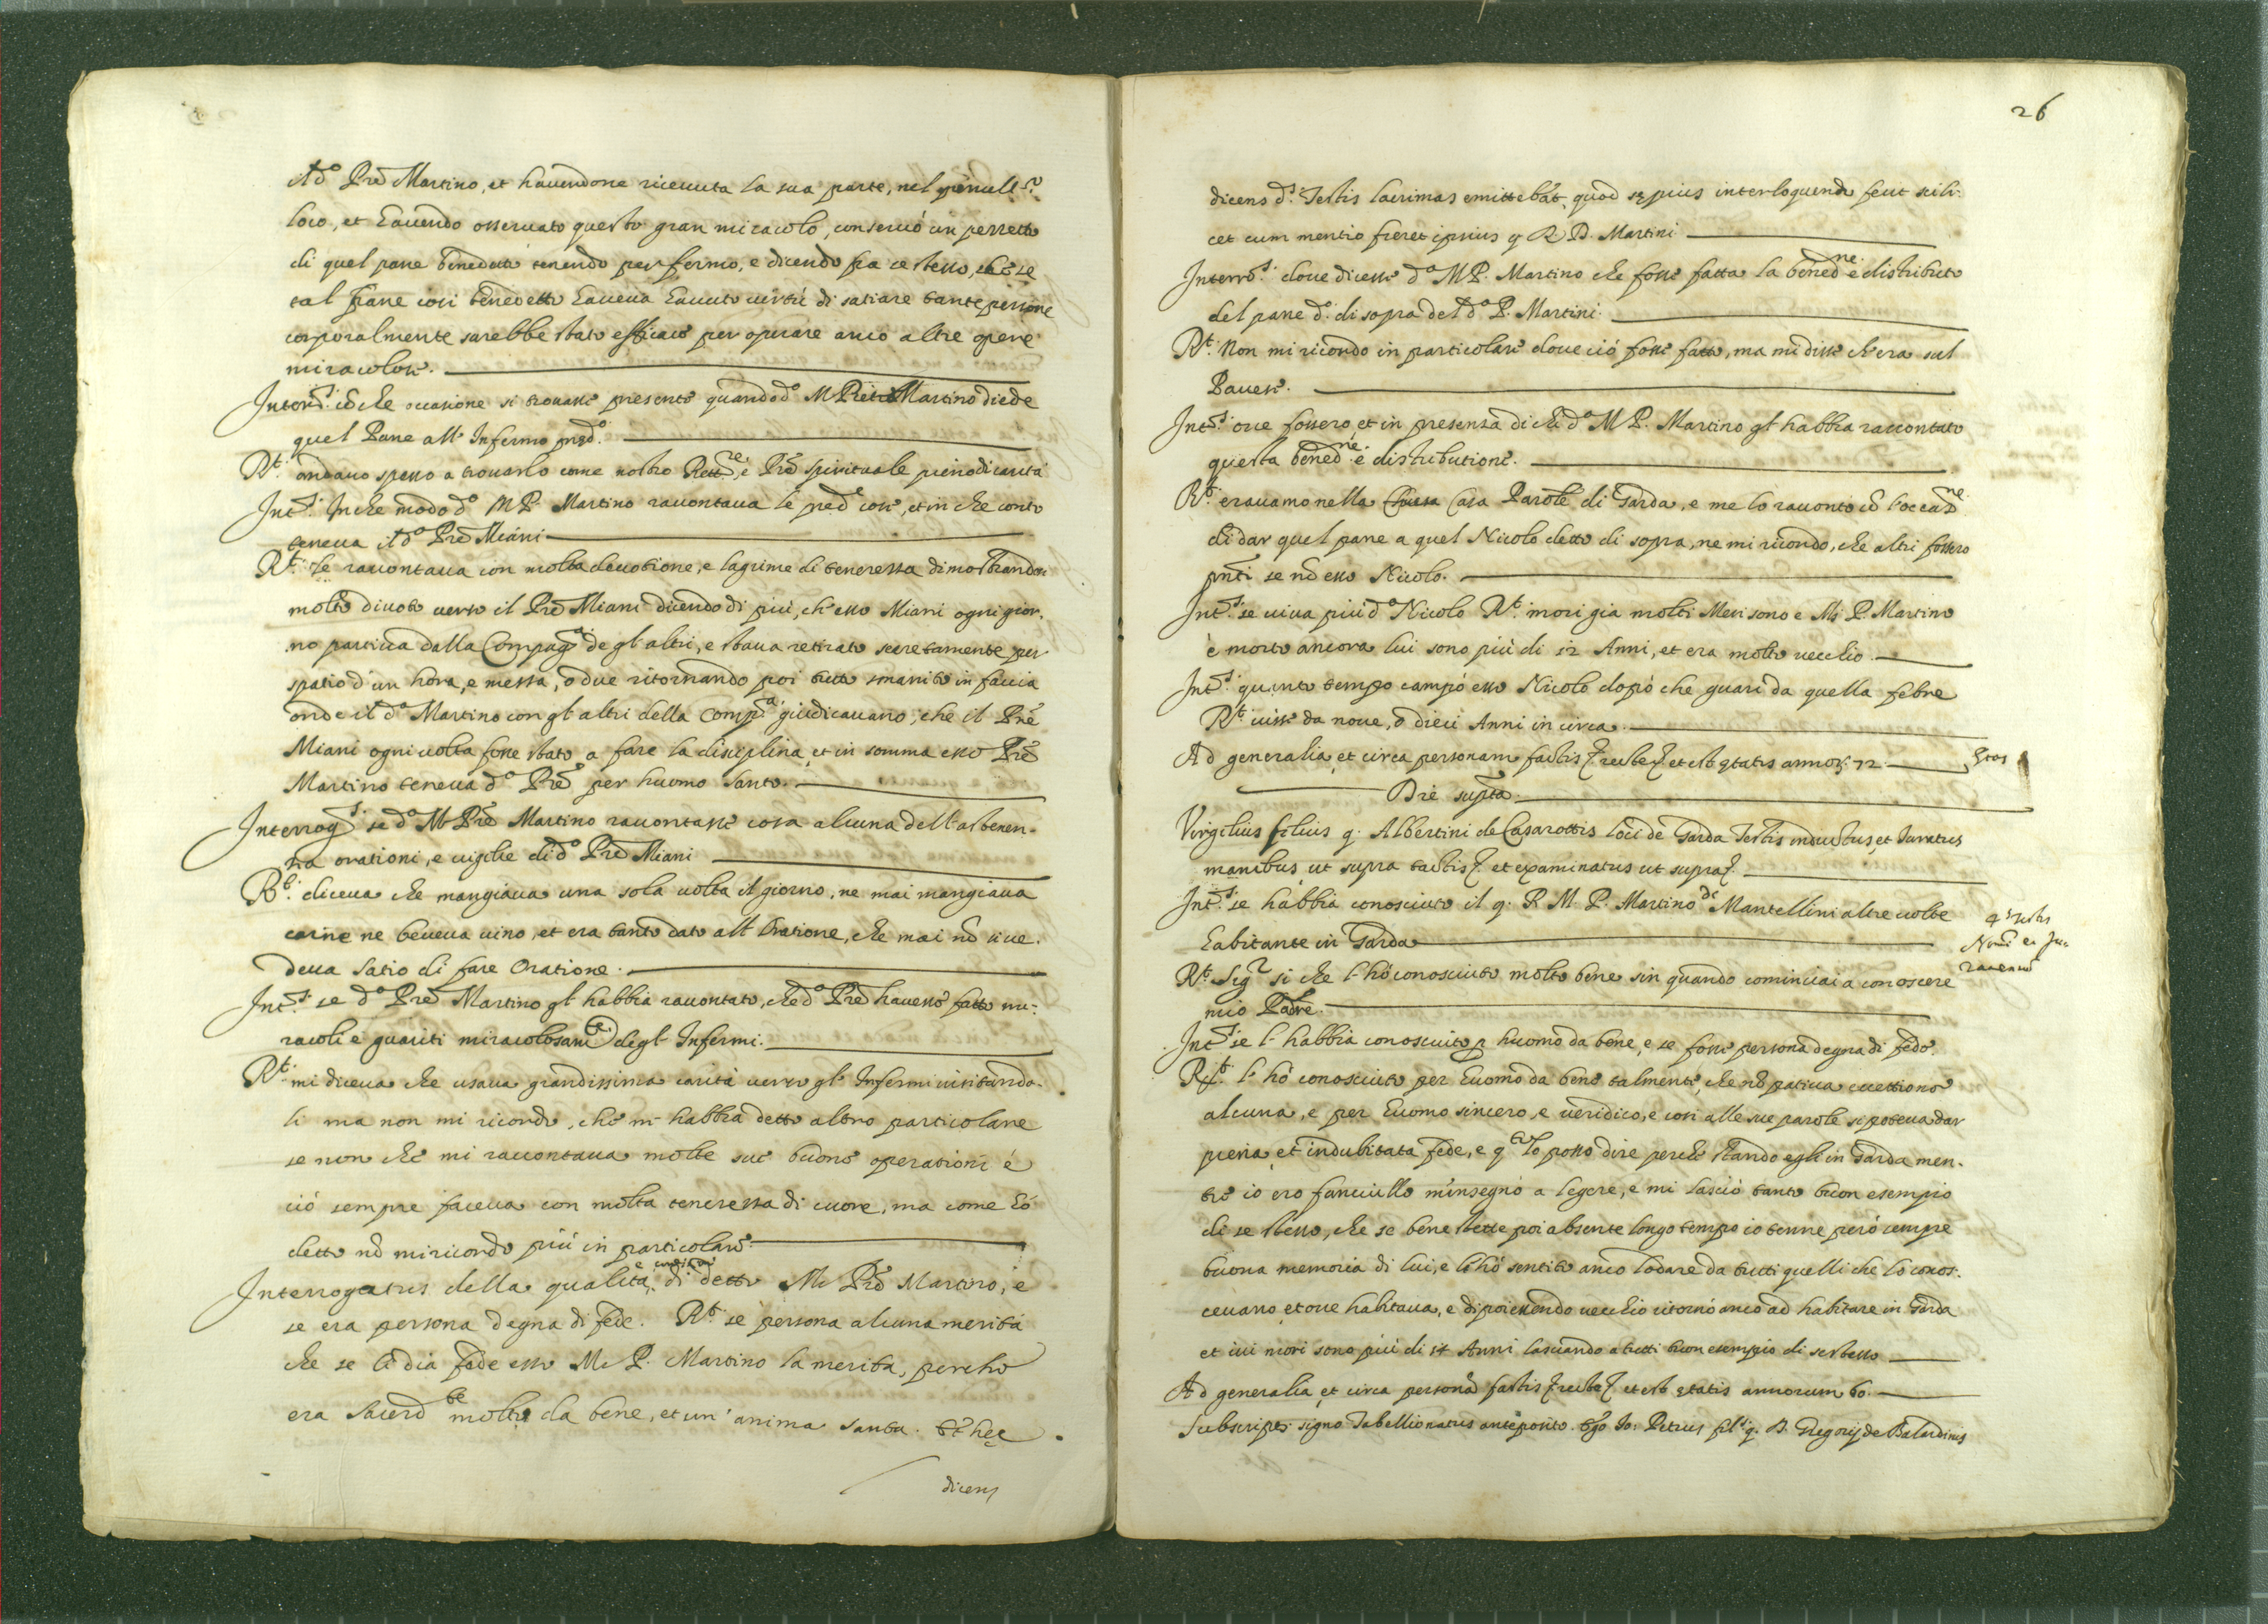 il d.o Pre Martino, et havendone riceuuta la sua parte, nel penult.o
loco, et hauendo osseruato questo gran miracolo, conseruò un pezzetto
di quel pane benedetto tenendo per fermo, e dicendo fra se stesso, che se
tal pane così benedetto haueua hauuto virtù di satiare tante persone
corporalmente sarebbe stato efficace per operare anco altre opere
miracolose.
Interr.s con che occasione si trouasse presente quando d.o M. Martino diede
quel Pane all'Infermo pred.o
R.t andauo spesso a trouarlo come nostro Rett.re e Prē spirituale pieno di carità
Int.s In che modo d.o M. P. Martino racontaua le pred.e cose, et in che conto
teneua il d.o Prē Miani
R.t le racontaua con molta deuotione, e lagrime di tenerezza dimostrandosi
molto diuoto verso il Prē Miani dicendo di più, ch'esso Miani ogni gior-
no partiua dalla Compag.a de gl'altri, e staua retirato secretamente per
spatio d'un hora, e mezza, o due ritornando poi tutto smarito in faccia
onde il d.o Martino con gl'altri della Comp.a giudicauano, che il Prē
Miani ogni uolta fosse stato a fare la disciplina, et in somma esso Prē
Martino teneua d.o Prē per huomo santo.
Interrog.s se d.o M. Prē Martino racontasse cosa alcuna dell'astenen-
za orationi, e uigilie di d.o Prē Miani
R.t diceua che mangiaua una sola uolta il giorno, ne mai mangiaua
carne ne beueua uino, et era tanto dato all'Oratione, che mai nō si ue-
deua satio di fare Oratione.
Int.s se d.o Prē Martino gl'habbia racontato, che d.o Prē hauesse fatto mi-
racoli e guariti miracolosam.te degl'Infermi.
R.t mi diceua che usaua grandissima carità verso gl'Infermi uisitando-
li ma non mi ricordo, che m'habbia detto altro particolare
se non che mi racontaua molte sue buone operationi e
ciò sempre faceua con molta tenerezza di cuore, ma come hò
detto nō mi ricordo più in particolare
Interrogatus della qualità, di detto M. Prē Martino, e
se era persona degna di fede. R.t se persona alcuna merita
che se li dia fede esso M. P. Martino la merita, perche
era Sacerd.te molto da bene, et un'anima santa. Et hęc
dicens
26
dicens d.s Testis lacrimas emittebat, quod sępius interloquendo fecit scili-
cet cum mentio fieret ipsius q. R. D. Martini
Interr.s doue dicesse d.o M. P. Martino che fosse fatta la bened.ne e distribut.e
del pane d.o di sopra del d.o P. Martini.
R.t Non mi ricordo in particolare doue ciò fosse fatto, ma mi disse ch'era sul
Pauese.
Int.s oue fossero, et in presenza di chi d.o M. P. Martino gl'habbia raccontato
questa bened.ne e distributione.
R.t erauamo nella Casa Parole di Garda, e me lo racontò cō l'occas.ne
di dar quel pane a quel Nicolo detto di sopra, ne mi ricordo, che altri fossero
pnti se nō esso Nicolo.
Int.s se uiua più d.o Nicolo R.t mori gia molti Mesi sono e M. P. Martino
è morto ancora lui sono più di 12 Anni, et era molto uecchio.
Int.s quanto tempo campò esso Nicolo dopò che guari da quella febre
R.t uisse da noue, o dieci Anni in circa
Ad generalia, et circa personam factis recte et est ętatis annor. 72.
Die supta.
Virgilius filius q. Albertini de Casarottis loci de Garda Testis inductus, et Juratus
manibus ut supra tactis et examinatus ut supra
Int.s se habbia conosciuto il q. R. M. P. Martino de Mantellini altre uolte
habitante in Garda
4.s Testis
R.t Sig.r si che l'hò conosciuto molto bene sin quando cominciai a conoscere
mio Padre.
Int.s se l'habbia conosciuto p huomo da bene, e se fosse persona degna di fede.
R.t l'hò conosciuto per huomo da bene talmente, che nō patiua eccettione
alcuna, e per huomo sincero, e ueridico, e così alle sue parole si poteua dar
piena, et indubitata fede, e q.to Io posso dire perche stando egli in Garda men-
tre io ero fanciullo m'insegnò a legere, e mi lasciò tanto buon esempio
di se stesso, che se bene stette poi absente longo tempo io tenne però sempre
buona memoria di lui, e l'hò sentito anco lodare da tutti quelli che lo conos-
ceuano, et oue habitaua, e dipoi essendo uecchio ritornò anco ad habitare in Garda
et iui morì sono più di 12 Anni lasciando a tutti buon esempio di se stesso
Ad generalia, et circa personā factis recte et est ętatis annorum 60.
Subscript. signo Tabellionatus anteposito. Ego Jo: Petrus fil.s q. D. Gregorij de Balardinis